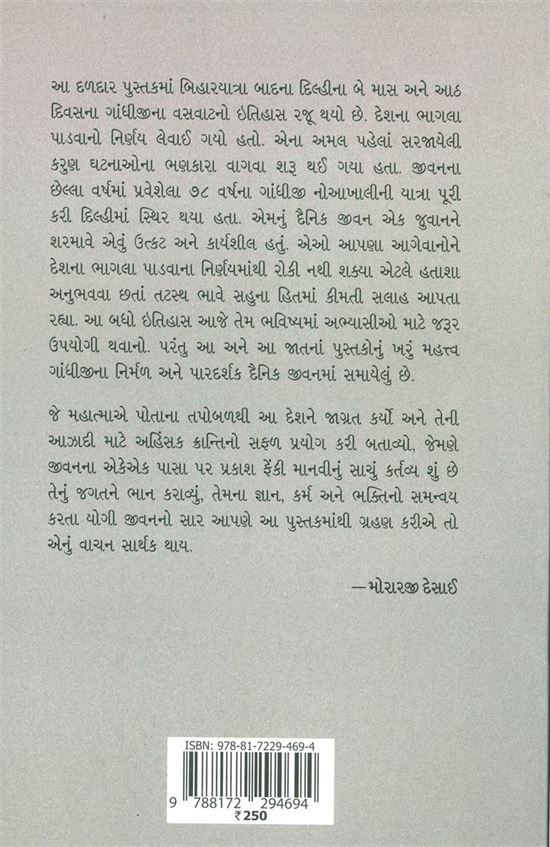 આ દળદાર પુસ્તકમાં બિહારયાત્રા બાદના દિલ્હીના બે માસ અને આઠ
દિવસના ગાંધીજીના વસવાટનો ઇતિહાસ રજૂ થયો છે. દેશના ભાગલા
પાડવાનો નિર્ણય લેવાઈ ગયો હતો. એના અમલ પહેલાં સરજાયેલી
કરુણ ઘટનાઓના ભણકારા વાગવા શરૂ થઈ ગયા હતા. જીવનના
છેલ્લા વર્ષમાં પ્રવેશેલા ૭૮ વર્ષના ગાંધીજી નોઆખાલીની યાત્રા પૂરી
કરી દિલ્હીમાં સ્થિર થયા હતા. એમનું દૈનિક જીવન એક જુવાનને
શરમાવે એવું ઉત્કટ અને કાર્યશીલ હતું. એઓ આપણા આગેવાનોને
દેશના ભાગલા પાડવાના નિર્ણયમાંથી રોકી નથી શક્યા એટલે હતાશા
અનુભવવા છતાં તટસ્થ ભાવે સહુના હિતમાં કીમતી સલાહ આપતા
રહ્યા. આ બધો ઇતિહાસ આજે તેમ ભવિષ્યમાં અભ્યાસીઓ માટે જરૂર
ઉપયોગી થવાનો. પરંતુ આ અને આ જાતનાં પુસ્તકોનું ખરું મહત્ત્વ
ગાંધીજીના નિર્મળ અને પારદર્શક દૈનિક જીવનમાં સમાયેલું છે.
જે મહાત્માએ પોતાના તપોબળથી આ દેશને જાગ્રત કર્યો અને તેની
આઝાદી માટે અહિંસક ક્રાન્તિનો સફળ પ્રયોગ કરી બતાવ્યો, જેમણે
જીવનના એકેએક પાસા પર પ્રકાશ ફેંકી માનવીનું સાચું કર્તવ્ય શું છે
તેનું જગતને ભાન કરાવ્યું, તેમના જ્ઞાન, કર્મ અને ભક્તિનો સમન્વય
કરતા યોગી જીવનનો સાર આપણે આ પુસ્તકમાંથી ગ્રહણ કરીએ તો
એનું વાચન સાર્થક થાય.
—મોરારજી દેસાઈ
ISBN: 978-81-7229-469-4
9 788172 294694
₹250